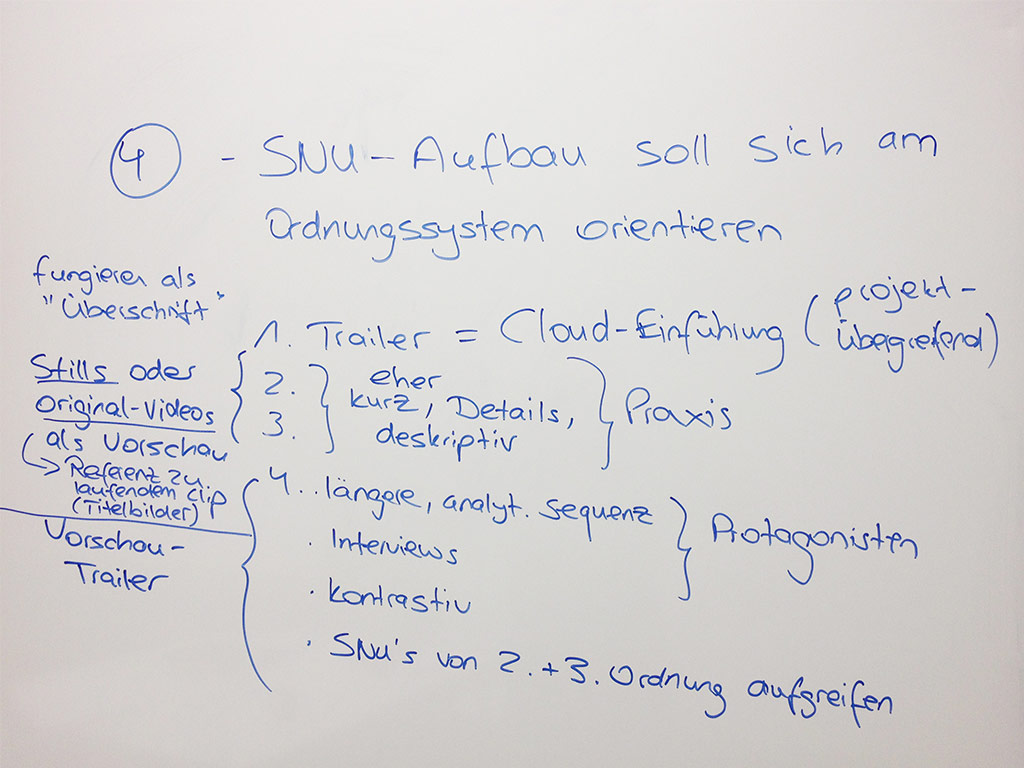 4 - SNU-Aufbau soll sich am
Ordnungssystem orientieren
fungieren als
"Überschrift"
1. Trailer = Cloud-Einführung (projekt-
übergreifend)
Stills oder
Original-Videos
als Vorschau
Referenz zu
laufendem Clip
(Titelbilder)
2.
3.
eher
kurz, Details,
deskriptiv
Praxis
Vorschau-
Trailer
4. . längere, analyt. Sequenz
. Interviews
. kontrastiv
. SNU's von 2. + 3. Ordnung aufgreifen
Protagonisten